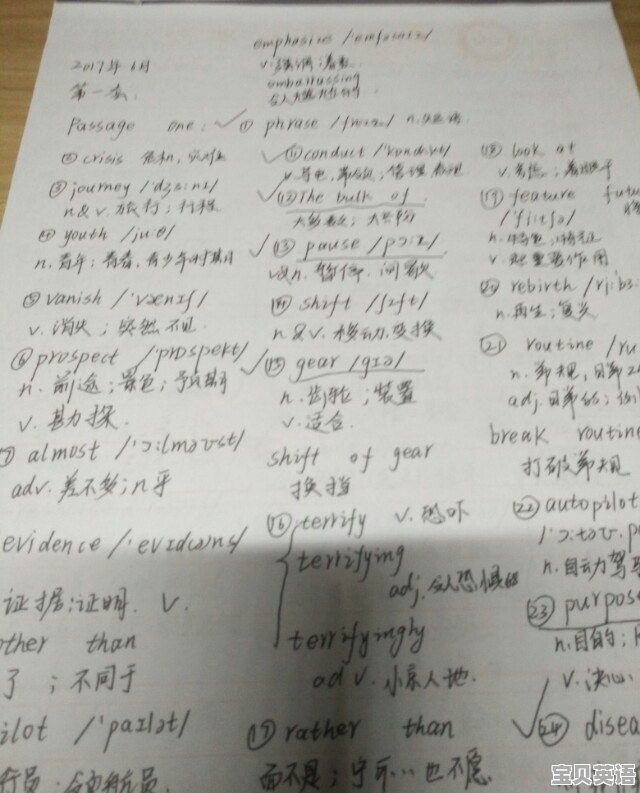 emphasize /'emfəsaiz/
v.强调;着重
embarrassing
令人尴尬的
2017年6月
第一套
Passage one:
① phrase /freiz/ n.短语
② crisis 危机,
③ journey /'dʒɜ:nɪ/
n&v. 旅行;行程
④ youth /ju:θ/
n.青年;青春,青少年时期
⑤ vanish /'vænɪʃ/
v. 消失;突然不见
⑥ prospect /'prɒspekt/
n. 前途;景色;预期
v. 勘探
almost /'ɔ:lməʊst/
adv.差不多;几乎
evidence /'evɪdəns/
证据;证明. v.
other than
了;不同于
ilot /'paɪlət/
行员;领航员
⑪ conduct /'kɒndʌkt/
v.导电,管理
⑫ The bulk of
大多数;大部分
⑬ pause /pɔ:z/
v&n. 暂停. 间歇
⑭ shift /ʃɪft/
n & v. 移动,变换
⑮ gear /gɪə/
n.齿轮;装置
v.适合.
shift of gear
换挡
⑯ terrify v.恐吓
terrifying
adj.令人恐惧的
terrifyingly
adv.
⑰ rather than
而不是;宁可…也不愿
⑱ look at
v.考虑;着眼于
⑲ feature
/'fi:tʃə/
n.特色;特征
v.起重要作用
⑳ rebirth /ri:'bɜ:
n.再生;复兴
㉑ routine /ru
n.常规,日常
adj.日常的;
break routine
打破常规
㉒ autopilot
/'ɔ:təʊ.p
n.自动驾驶
㉓ purpose
n.目的;
v.决心.
㉔ disea
宝贝英语